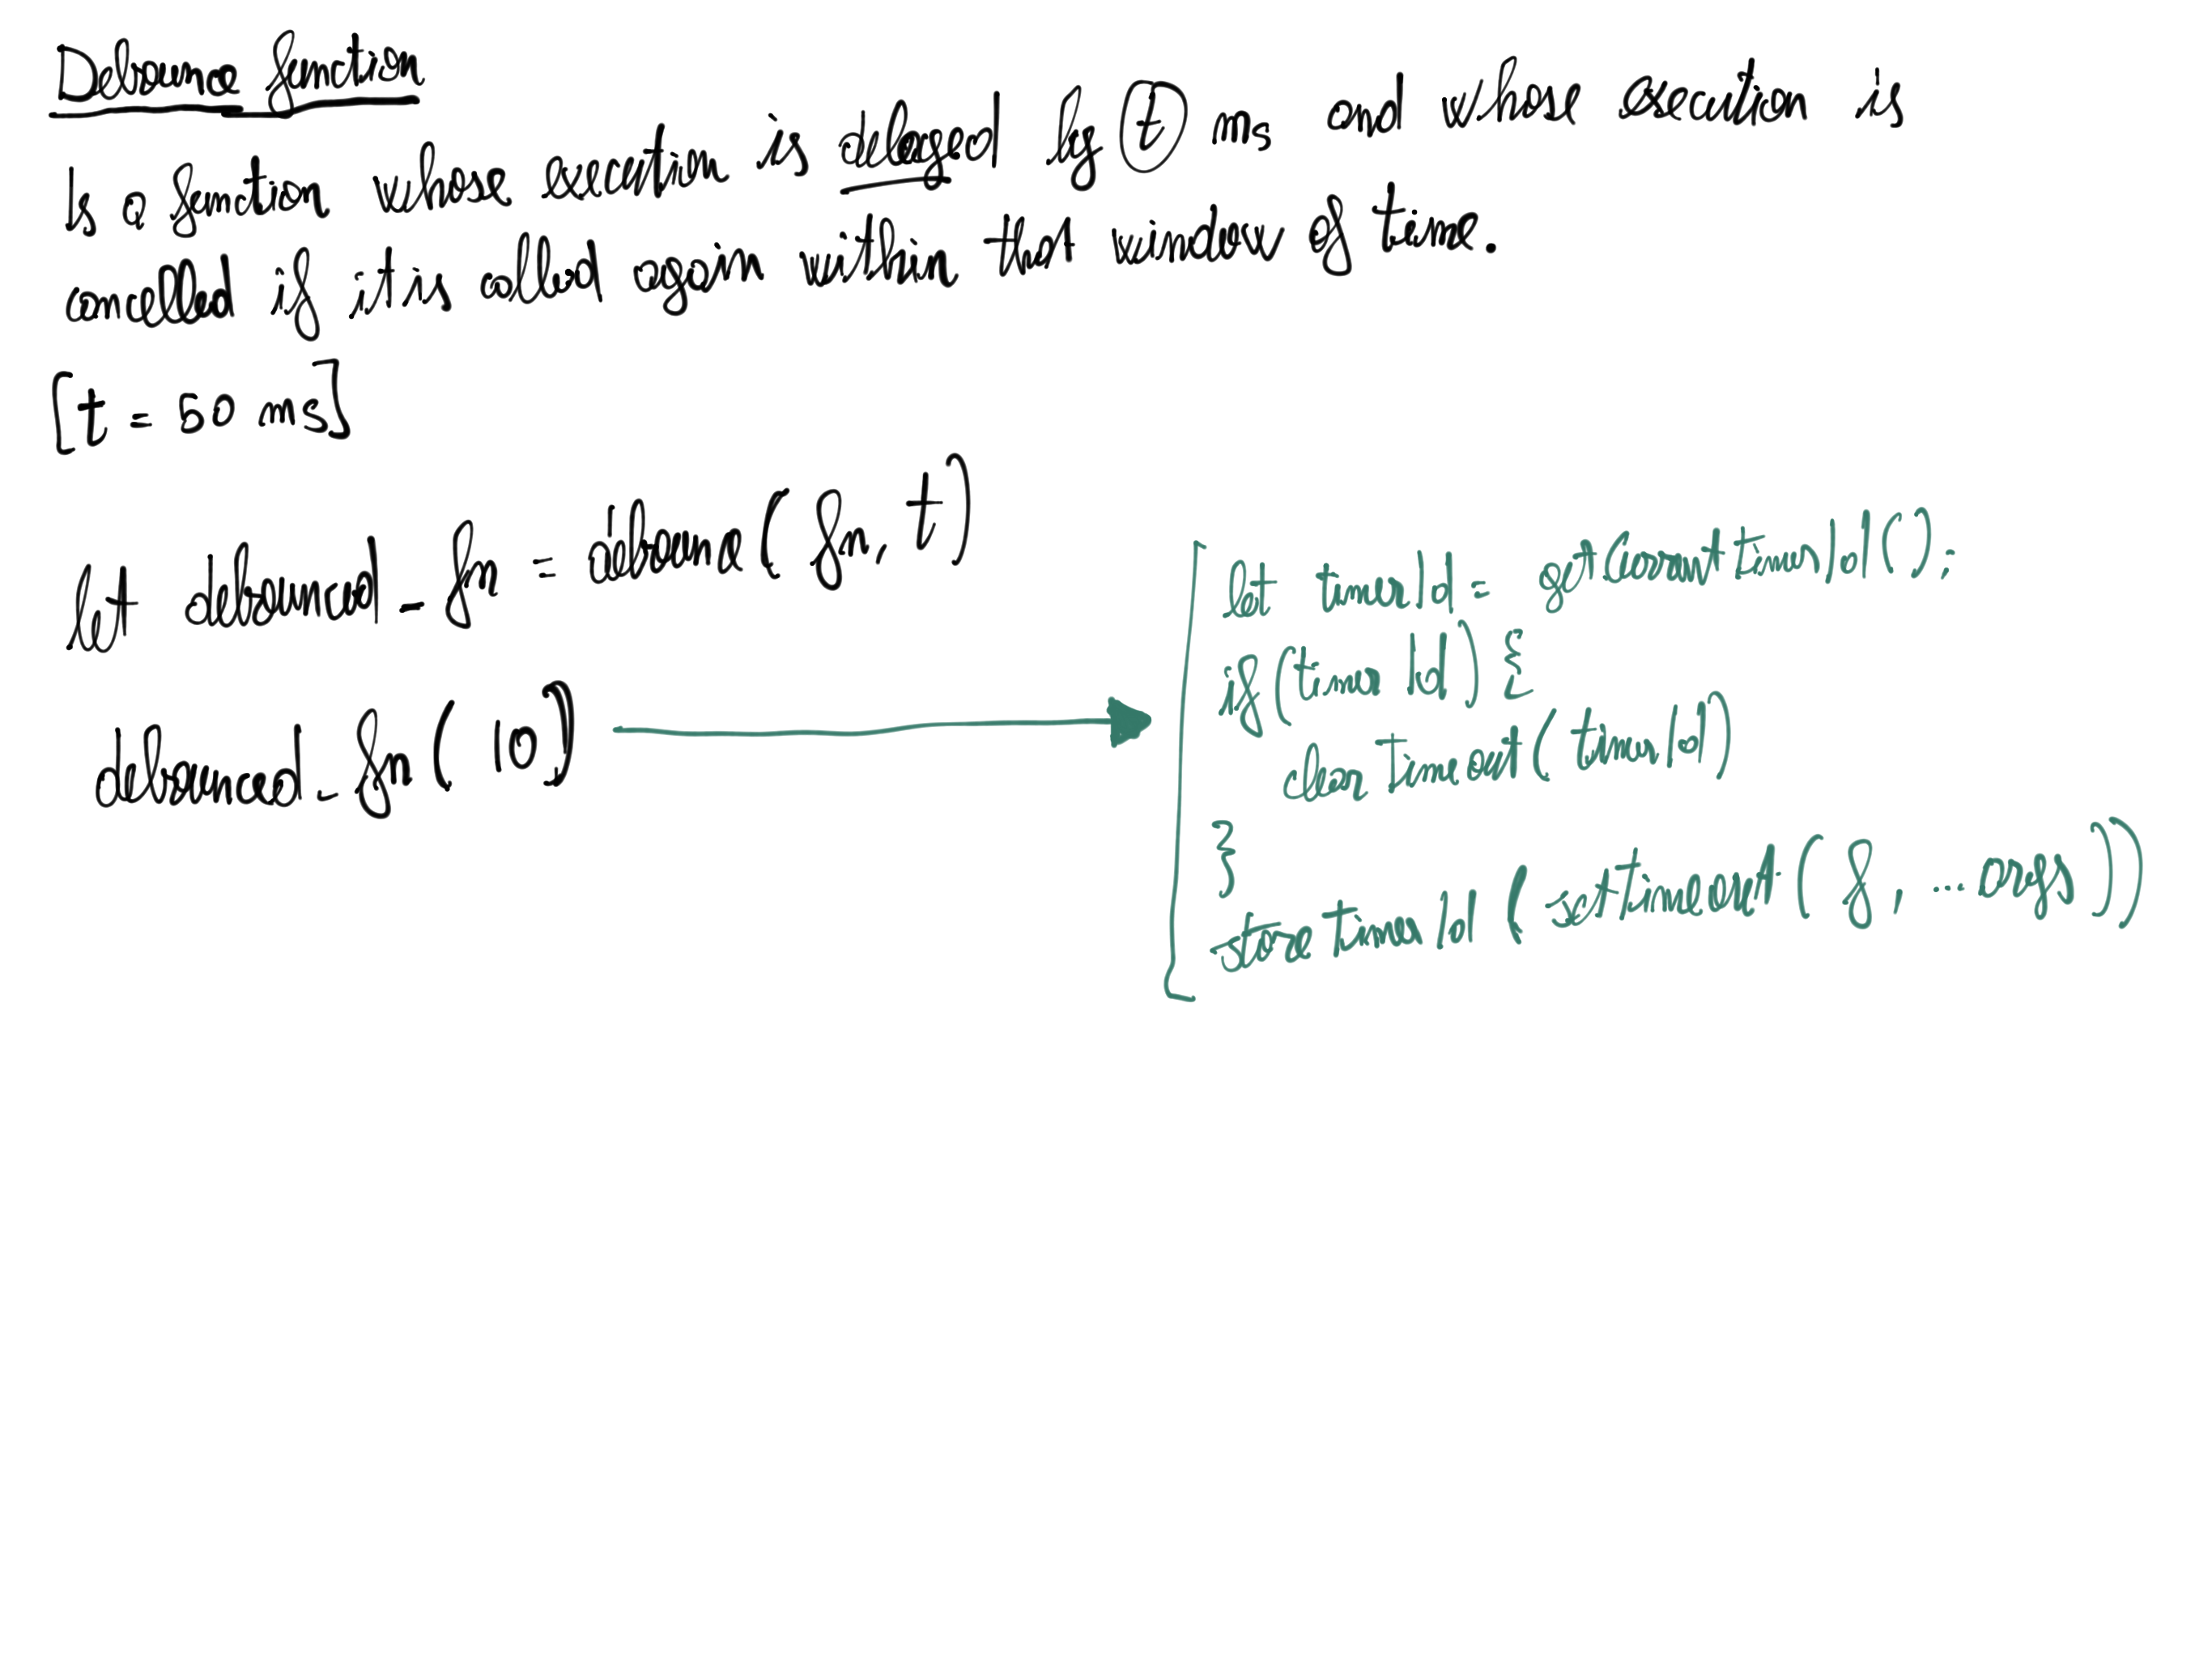 Debounce function
Is a function whose execution is delayed by t ms and whose execution is
cancelled if it is called again within that window of time.
[t = 50 ms]
let debounced_fn = debounce(fn, t)
debounced_fn(10)
let timerId = getCurrentTimerId();
if(timerId) {
clearTimeout(timerId)
}
storeTimerId(setTimeout(f, ...args))